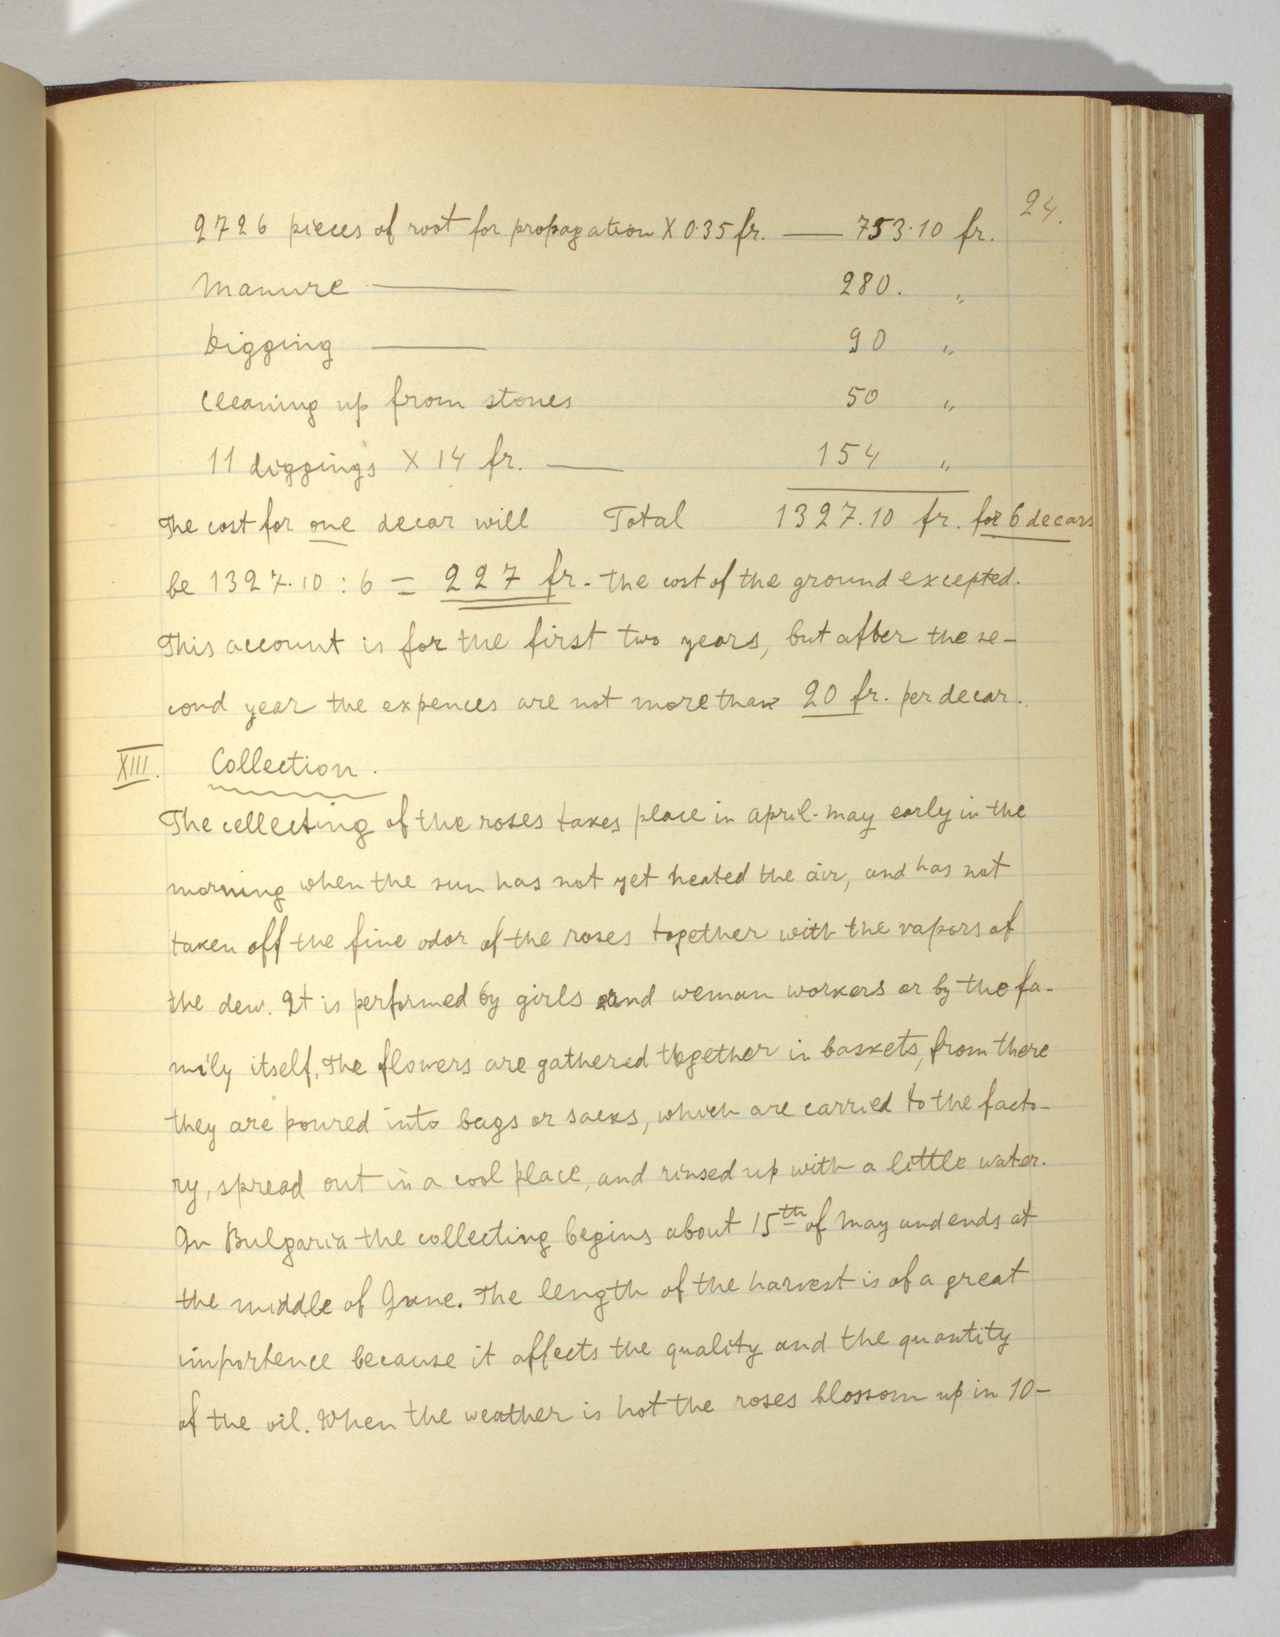 24.
2726 pieces of root for propagation X 0.35 fr. — 753.10 fr.
Manure — 280. "
Digging — 90 "
Cleaning up from stones 50 "
11 diggings X 14 fr. — 154 "
The cost for one decar will Total 1327.10 fr. for 6 decars
be 1327.10 : 6 = 227 fr. the cost of the ground excepted.
This account is for the first two years, but after the se-
cond year the expences are not more than 20 fr. per decar.
XIII. Collection.
The cellecting of the roses takes place in april-may early in the
morning when the sun has not yet heated the air, and has not
taken off the fine odor of the roses together with the vapors of
the dew. It is performed by girls and weman workers or by the fa-
mily itself. The flowers are gathered together in baskets, from there
they are poured into bags or sacks, which are carried to the facto-
ry, spread out in a cool place, and rinsed up with a little water.
In Bulgaria the collecting begins about 15th of May and ends at
the middle of June. The length of the harvest is of a great
importence because it affects the quality and the quantity
of the oil. When the weather is hot the roses blossom up in 10-